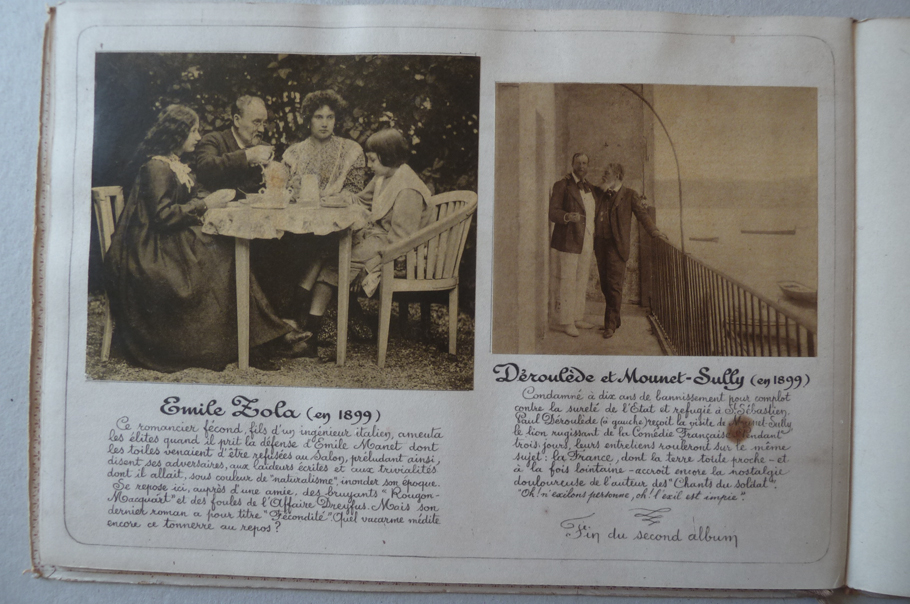 Emile Zola (en 1899)
Ce romancier fécond, fils d'un ingénieur italien, ameuta
les élites quand il prit la défense d'Emile Manet dont
les toiles venaient d'être refusées au Salon, préludant ainsi,
disent ses adversaires, aux laideurs écrites et aux trivialités
dont il allait, sous couleur de "naturalisme", inonder son époque.
Se repose ici, auprès d'une amie, des bruyants "Rougon-
Macquart" et des foules de l'Affaire Dreyfus. Mais son
dernier roman a pour titre "Fécondité". Quel vacarme médite
encore ce tonnerre au repos?
Déroulède et Mounet-Sully (en 1899)
Condamné à dix ans de bannissement pour complot
contre la sureté de l'Etat et refugié à St Sébastien,
Paul Déroulède (à gauche) reçoit la visite de Mounet-Sully
le lion rugissant de la Comédie Française. Pendant
trois jours, leurs entretiens rouleront sur le même
sujet: la France, dont la terre toute proche - et
à la fois lointaine - accroit encore la nostalgie
douloureuse de l'auteur des "Chants du soldat":
"Oh! n'exilons personne, oh! l'exil est impie".
Fin du second album